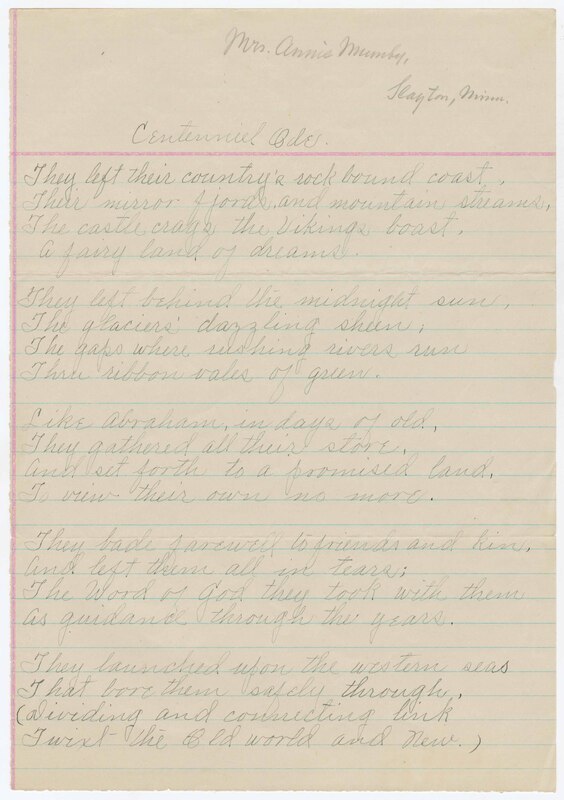 Mrs. Annie Mumby,
Slayton, Minn.
Centenniel Ode.
They left their country's rock bound coast,
Their mirror fjords, and mountain streams,
The castle crags the Vikings boast,
A fairy land of dreams.
They left behind the midnight sun,
The glaciers' dazzling sheen;
The gaps where rushing rivers run
Thru ribbon vales of green.
Like Abraham, in days of old,
They gathered all their store,
And set forth to a promised land,
To view their own no more.
They bade farewell to friends and kin,
And left them all in tears;
The Word of God they took with them
As guidance through the years.
They launched upon the western seas
That bore them safely through,
(Dividing and connecting link
Twixt the Old world and New.)